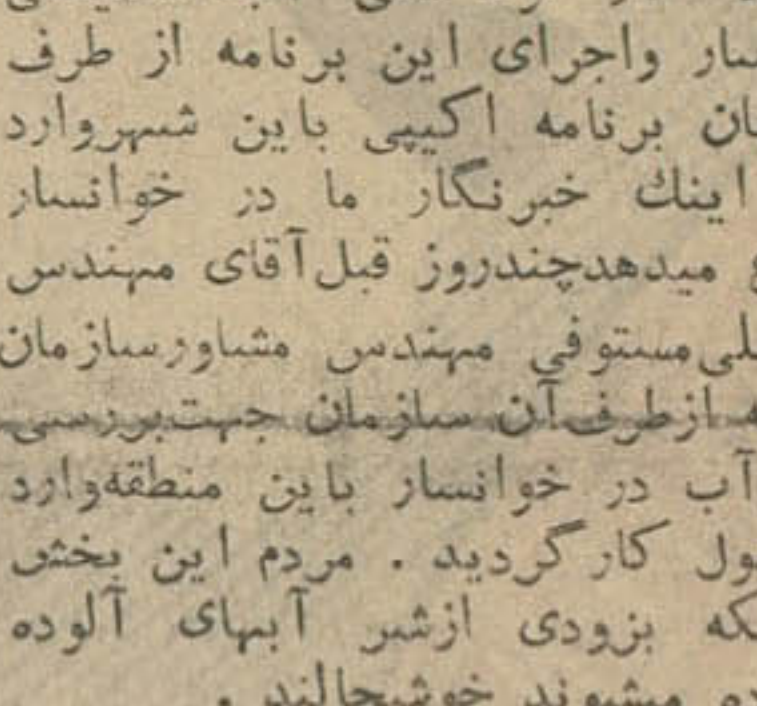 سار واجرای این برنامه از طرف
برنامه اکیپی باین شهروارد
اینك خبرنگار ما در خوانسار
میدهدچندروز قبل آقای مهندس
مستوفی مهندس مشاورسازمان
ازطرف آن سازمان جهت‌بررسی
آب در خوانسار باین منطقه‌وارد
کارگردید . مردم این بخش
بزودی ازشر آبهای آلوده
میشوند خوشحالند .